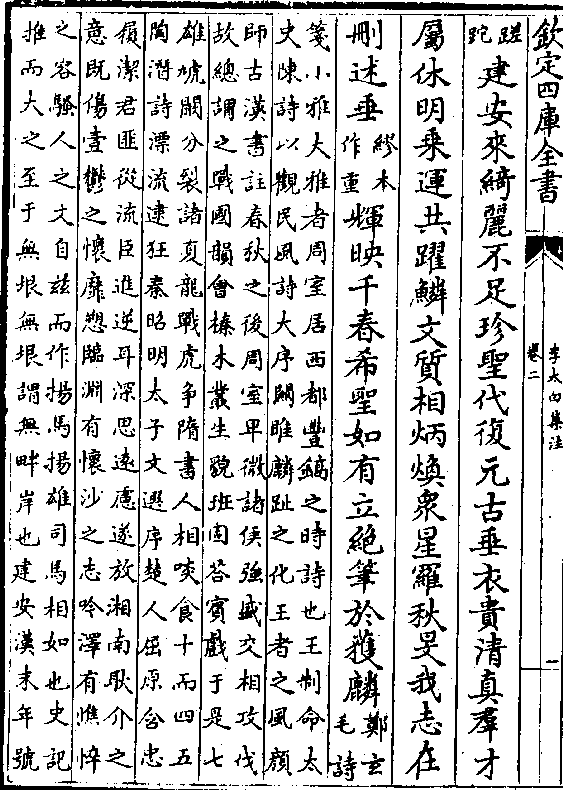 欽定四庫全書
李太白集注
卷二
一
蹉跎建安來綺麗不足珍聖代復元古垂衣貴清真羣才
屬休明乘運共躍鱗文質相炳煥衆星羅秋旻我志在
刪述垂繆本作重輝映千春希聖如有立絕筆於獲麟鄭玄毛詩
箋小雅大雅者周室居西都豐鎬之時詩也王制命太
史陳詩以觀民風詩大序關雎麟趾之化王者之風顔
師古漢書註春秋之後周室卑微諸侯強盛交相攻伐
故總謂之戰國韻會榛木叢生貌班固荅賓戲于是七
雄虓闞分裂諸夏龍戰虎爭隋書人相啖食十而四五
陶潛詩漂流逮狂秦昭明太子文選序楚人屈原含忠
履潔君匪從流臣進逆耳深思遠慮遂放湘南耿介之
意既傷壹鬱之懷靡愬臨淵有懷沙之志吟澤有憔悴
之容騷人之文自兹而作揚馬揚雄司馬相如也史記
推而大之至于無垠無垠謂無畔岸也建安漢末年號